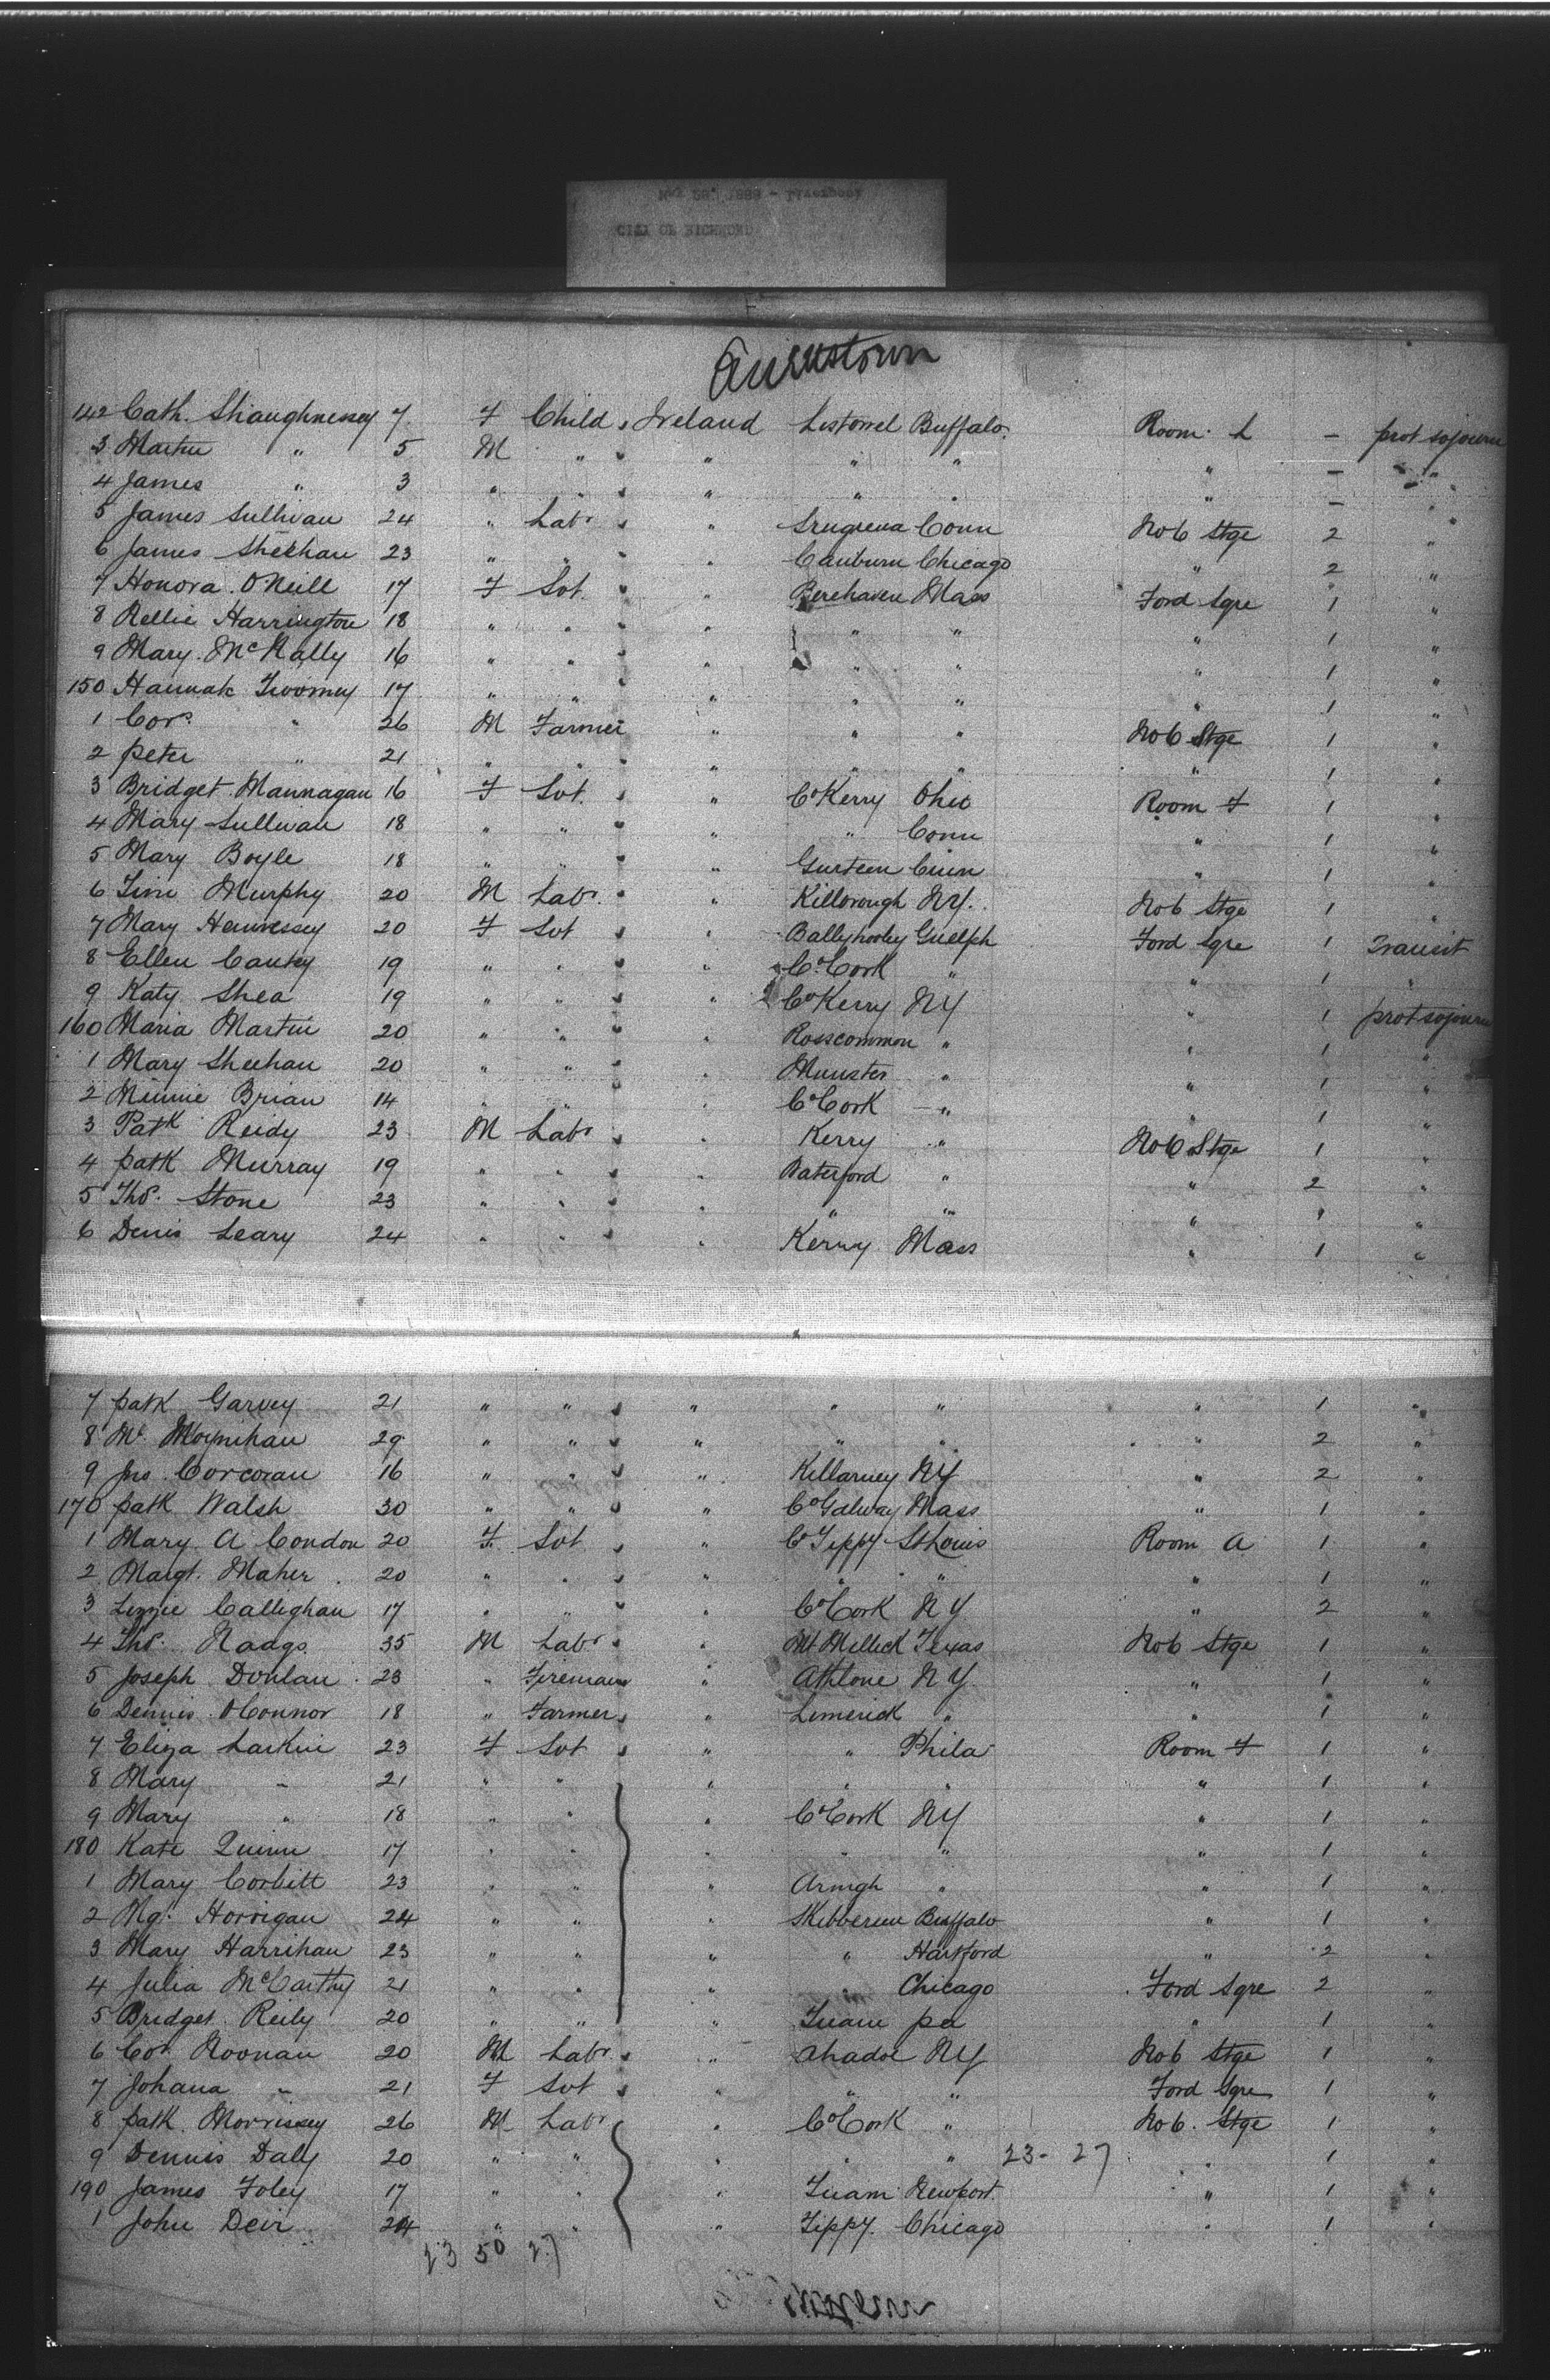 May 28, 1888 - Liverpool
CITY OF RICHMOND
Queenstown
142 Cath. Shaughnessey 7 F Child " Ireland Listowel Buffalo Room L - prot sojourn
3 Martin " 5 M " " " " " " - "
4 James " 3 " " " " " " " - "
5 James Sullivan 24 " Labr " " Srugrena Conn No 6 Stge 2 "
6 James Sheehan 23 " " " Canburn Chicago " 2 "
7 Honora O'Neill 17 F Svt " " Berehaven Mass Ford Sqre 1 "
8 Nellie Harrington 18 " " " " " " " 1 "
9 Mary McNally 16 " " " " " " " 1 "
150 Hannah Twomey 17 " " " " " " " 1 "
1 Cors. " 26 M Farmer " " " No 6 Stge 1 "
2 Peter " 21 " " " " " " " 1 "
3 Bridget Mannagan 16 F Svt. " " Co Kerry Ohio Room F 1 "
4 Mary Sullivan 18 " " " " " Conn " 1 "
5 Mary Boyle 18 " " " " Gurteen Cinn " 1 "
6 Tim Murphy 20 M Labr. " " Killorough NY. No 6 Stge 1 "
7 Mary Hennessey 20 F Svt " " Ballyhooley Guelph Ford Sqre 1 Transit
8 Ellen Cantey 19 " " " " Co Cork " " 1 "
9 Katy Shea 19 " " " " Co Kerry NY " 1 prot sojourn
160 Maria Martin 20 " " " " Rosscommon " " 1 "
1 Mary Sheehan 20 " " " " Munster " " 1 "
2 Minnie Brian 14 " " " Co Cork - " " 1 "
3 Patk Reidy 23 M Labr " " Kerry " No 6 Stge 1 "
4 Patk Murray 19 " " " " Waterford " " 2 "
5 Thos. Stone 23 " " " " " " " 1 "
6 Denis Leary 24 " " " " Kerry Mass " 1 "
7 Patk Garvey 21 " " " " " " " 1 "
8 Ml. Moynihan 29 " " " " " " " 2 "
9 Jno. Corcoran 16 " " " " Killarney NY " 2 "
170 Patk Walsh 30 " " " " Co Galway Mass " 1 "
1 Mary A Condon 20 F. Svt " " Co Tippy St Louis Room A 1 "
2 Margt. Maher 20 " " " " " " " 1 "
3 Lizzie Callighan 17 " " " " Co Cork NY " 2 "
4 Thos. Nadgs. 35 M Labr " " Mt Mellick Texas No 6 Stge 1 "
5 Joseph Donlan 23 " Fireman " Athlone NY. " 1 "
6 Dennis O'Connor 18 " Farmer " " Limerick " " 1 "
7 Eliza Larkin 23 F Svt " " " Phila Room F 1 "
8 Mary " 21 " " " " " " 1 "
9 Mary " 18 " " " Co Cork NY " 1 "
180 Kate Quinn 17 " " " " " " 1 "
1 Mary Corbitt 23 " " " Armgh " " 1 "
2 Mgt. Horrigan 24 " " " Skibbereen Buffalo " 1 "
3 Mary Harrihan 23 " " " " Hartford " 2 "
4 Julia McCarthy 21 " " " " Chicago Ford Sqre 2 "
5 Bridget Reily 20 " " " Tuam Pa " 1 "
6 Cors. Noonan 20 M Labr. " " Ahadoe NY No 6 Stge 1 "
7 Johana " 21 F Svt " " " " Ford Sqre 1 "
8 Patk. Morrissey 26 M Labr " Co Cork " No 6. Stge 1 "
9 Dennis Daly 20 " " " " " 23 - 27 " 1 "
190 James Foley 17 " " " Tuam Newport " 1 "
1 John Devr 24 " " " Tippy. Chicago " 1 "
23 50 27